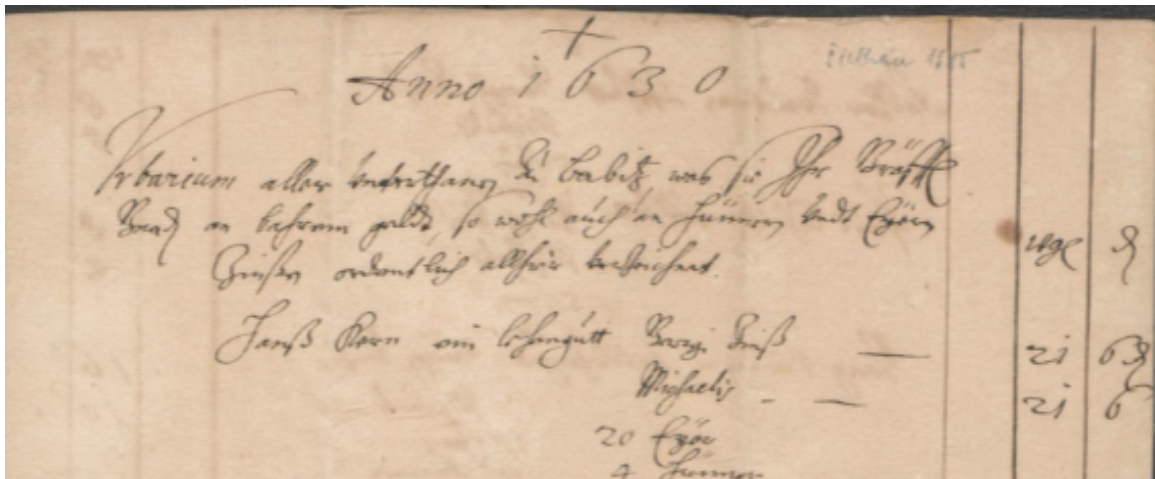 Anno 1630
Urbarium aller Unterthanen Zu Babitz, was sie Ihr Gräffl
Gnad an bahrem geldt, so wohl auch an Hünern undt Eyern
Zinsen ordentlich allhier verzeichnet.
Hanß Kern ein lehengutt Georgi Zinß — 21 6 d
Michaelis - — 21 6
20 Eyer
4 Hünner